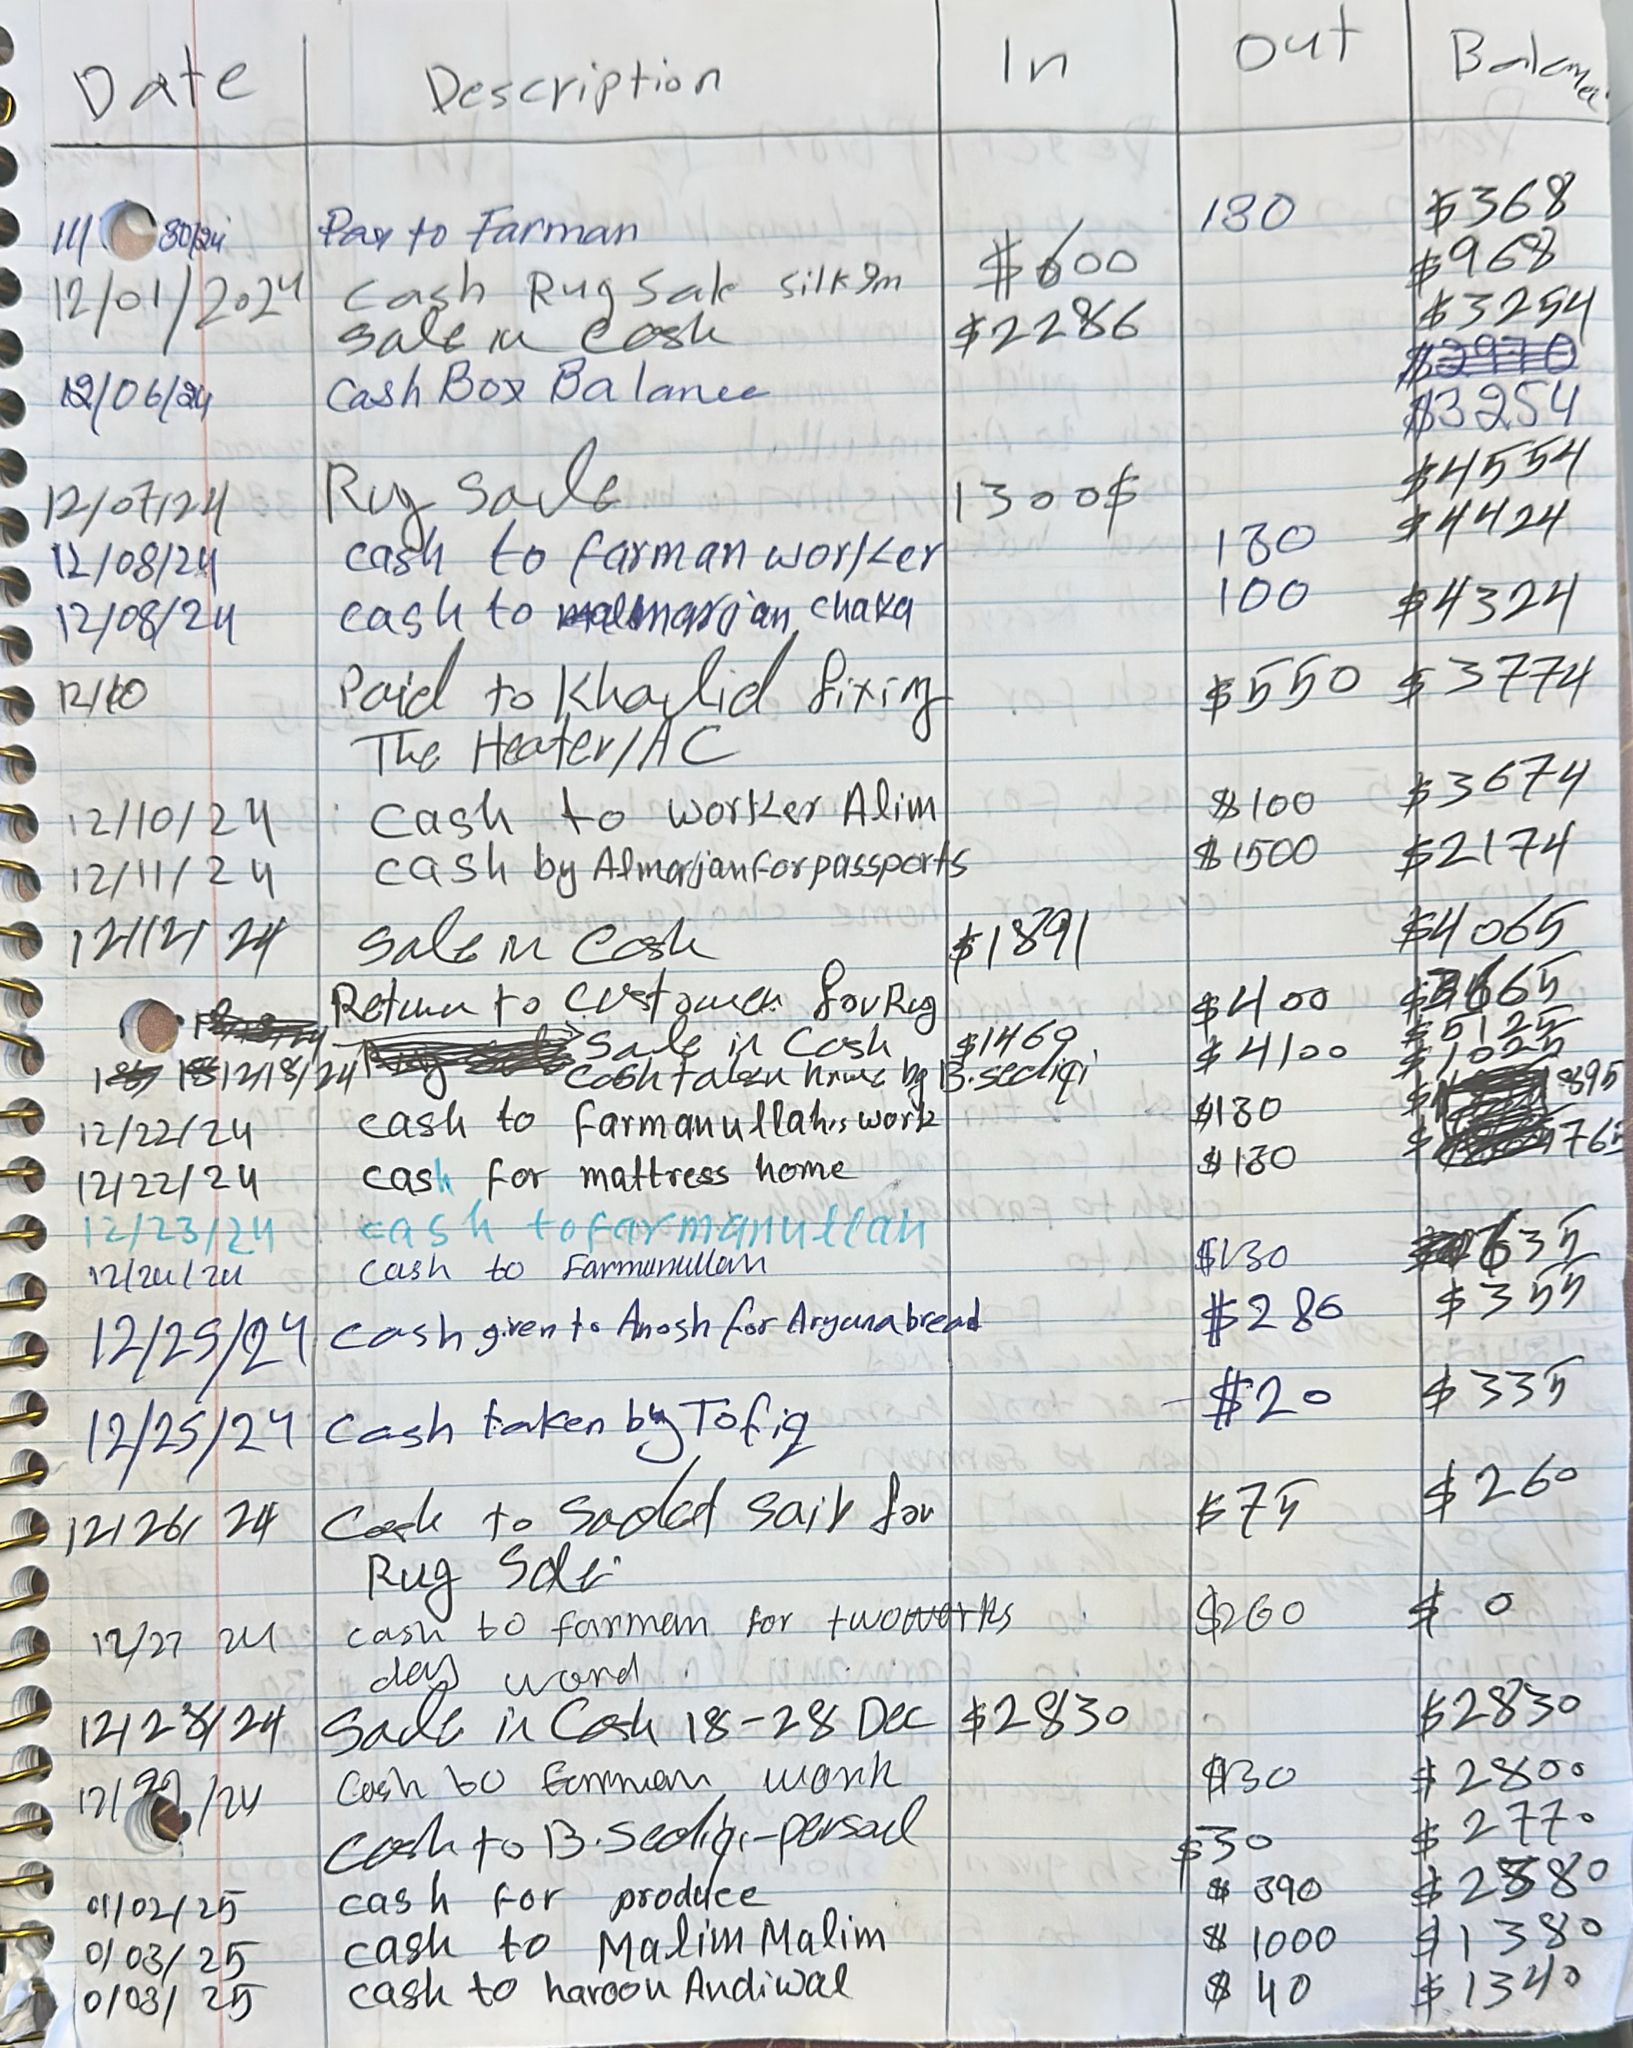 Date Description In Out Balance
11/ 30/24 Pay to Farman 130 $368
12/01/2024 Cash Rug Sale silk 9m $600 $968
Sale in Cash $2286 $3254
$2970
12/06/24 Cash Box Balance $3254
12/07/24 Rug Sale 1300$ $4554
12/08/24 cash to farman worker 130 $4424
12/08/24 cash to almarjan chaka 100 $4324
12/10 Paid to Khalid fixing $550 $3774
The Heater/AC
12/10/24 cash to worker Alim $100 $3674
12/11/24 cash by Almarjan for passports $1500 $2174
12/12/24 Sale in Cash $1891 $4065
Return to Customer for Rug $400 $3665
Sale in Cash $1460 $5125
12/18/24 Cash taken home by B.sediqi $4100 $1025
12/22/24 cash to farmanullah,s work $130 895
12/22/24 cash for mattress home $130 765
12/23/24 cash to farmanullah
12/24/24 cash to Farmanullah $130 635
12/25/24 Cash given to Anosh for Aryana bread $280 $355
12/25/24 Cash taken by Tofiq $20 $335
12/26/24 Cash to Sadat Saib for $75 $260
Rug Sale
12/27 24 cash to farman for two works $260 $0
day word
12/28/24 Sale in Cash 18-28 Dec $2830 $2830
12/29/24 Cash to Farman work $30 $2800
Cash to B.Sediqi- $30 $2770
01/02/25 cash for produce $390 $2380
01/03/25 cash to Malim Malim $1000 $1380
0/03/25 cash to haroon Andiwal $40 $1340